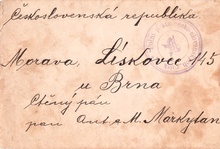 Československá republika
Morava, Lískovec 145
u Brna
Ctěný pán
pan Ant. M. Markytan